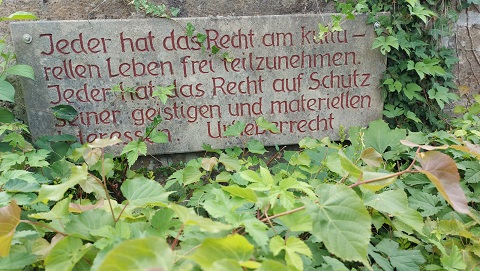 Jeder hat das Recht am kultu –
rellen Leben frei teilzunehmen.
Jeder hat das Recht auf Schutz
seiner geistigen und materiellen
Interessen. Urheberrecht